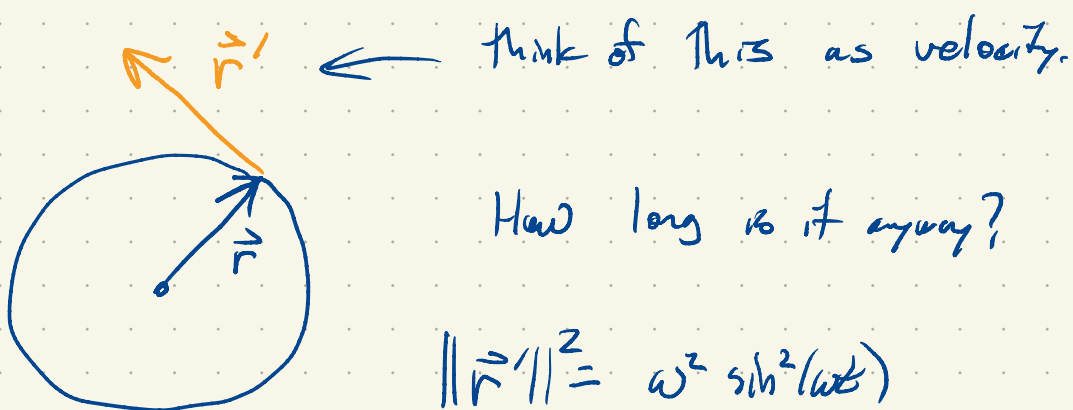 r⃗′ ← think of this as velocity.
How long is it anyway?
r⃗
‖r⃗′‖² = ω² sin²(ωt)